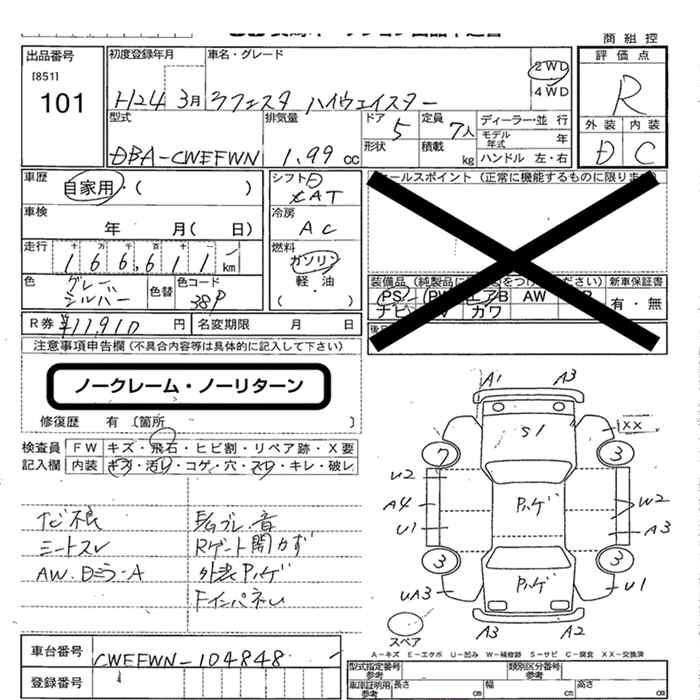 商組控
出品番号
[851]
101
初度登録年月
H24 3月
車名・グレード
ラフェスタ ハイウェイスター
2WD
4WD
評価点
R
外装 内装
D C
型式
DBA-CWEFWN
排気量
1.99 cc
ドア 5
形状
定員 7人
積載 kg
ディーラー・並行
モデル年式 年
ハンドル 左・右
車歴
自家用・( )
車検
年 月( 日)
シフト
AT
冷房
AC
燃料
ガソリン
軽油
( ・ )
走行
十 万 千 百 十 一
166,611 km
色
グレー
シルバー
色替
色コード
38P
セールスポイント (正常に機能するものに限ります)
新車保証書
有・無
PS
エアB AW
カワ
R券 ¥11,910 円
名変期限 月 日
注意事項申告欄 (不具合内容等は具体的に記入して下さい)
ノークレーム・ノーリターン
修復歴 有 〔箇所
検査員記入欄
FW キズ・飛石・ヒビ割・リペア跡・X要
内装 キズ・汚レ・コゲ・穴・スレ・キレ・破レ
ナビ不良
シートスレ
AW.Dミラ-A
E/Gブレ.音
Rゲート開かず
外装Pハゲ
Fインパネレ
A1 A3
S1
XX
7 3
U2
A4
U1
Pハゲ
W2
A3
3 3
UA3
Pハゲ
U1
スペア
A3 A2
A-キズ E-エクボ U-凹み W-補修跡 S-サビ C-腐食 XX-交換済
車台番号
CWEFWN-104848
登録番号
型式指定番号
参考
類別区分番号
参考
車庫証明用
参考
長さ cm 幅 cm 高さ cm